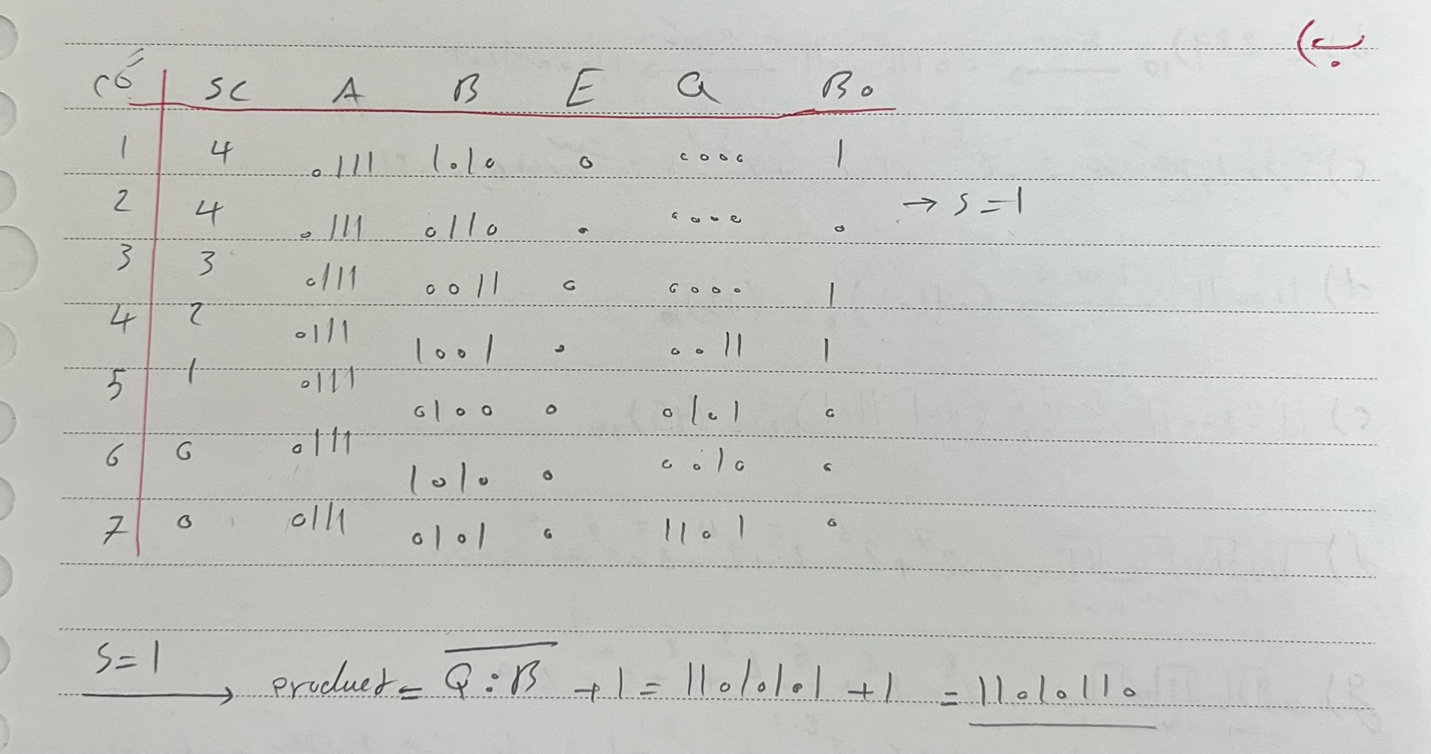 ب)
SC A B E Q B0
1 4 0111 1010 0 0000 1
2 4 0111 0110 0 0000 0 → S=1
3 3 0111 0011 0 0000 1
4 2 0111 1001 0 0011 1
5 1 0111 0100 0 0101 0
6 0 0111 1010 0 0010 0
7 0 0111 0101 0 1101 0
S=1 → product = Q:B + 1 = 11010101 + 1 = 11010110